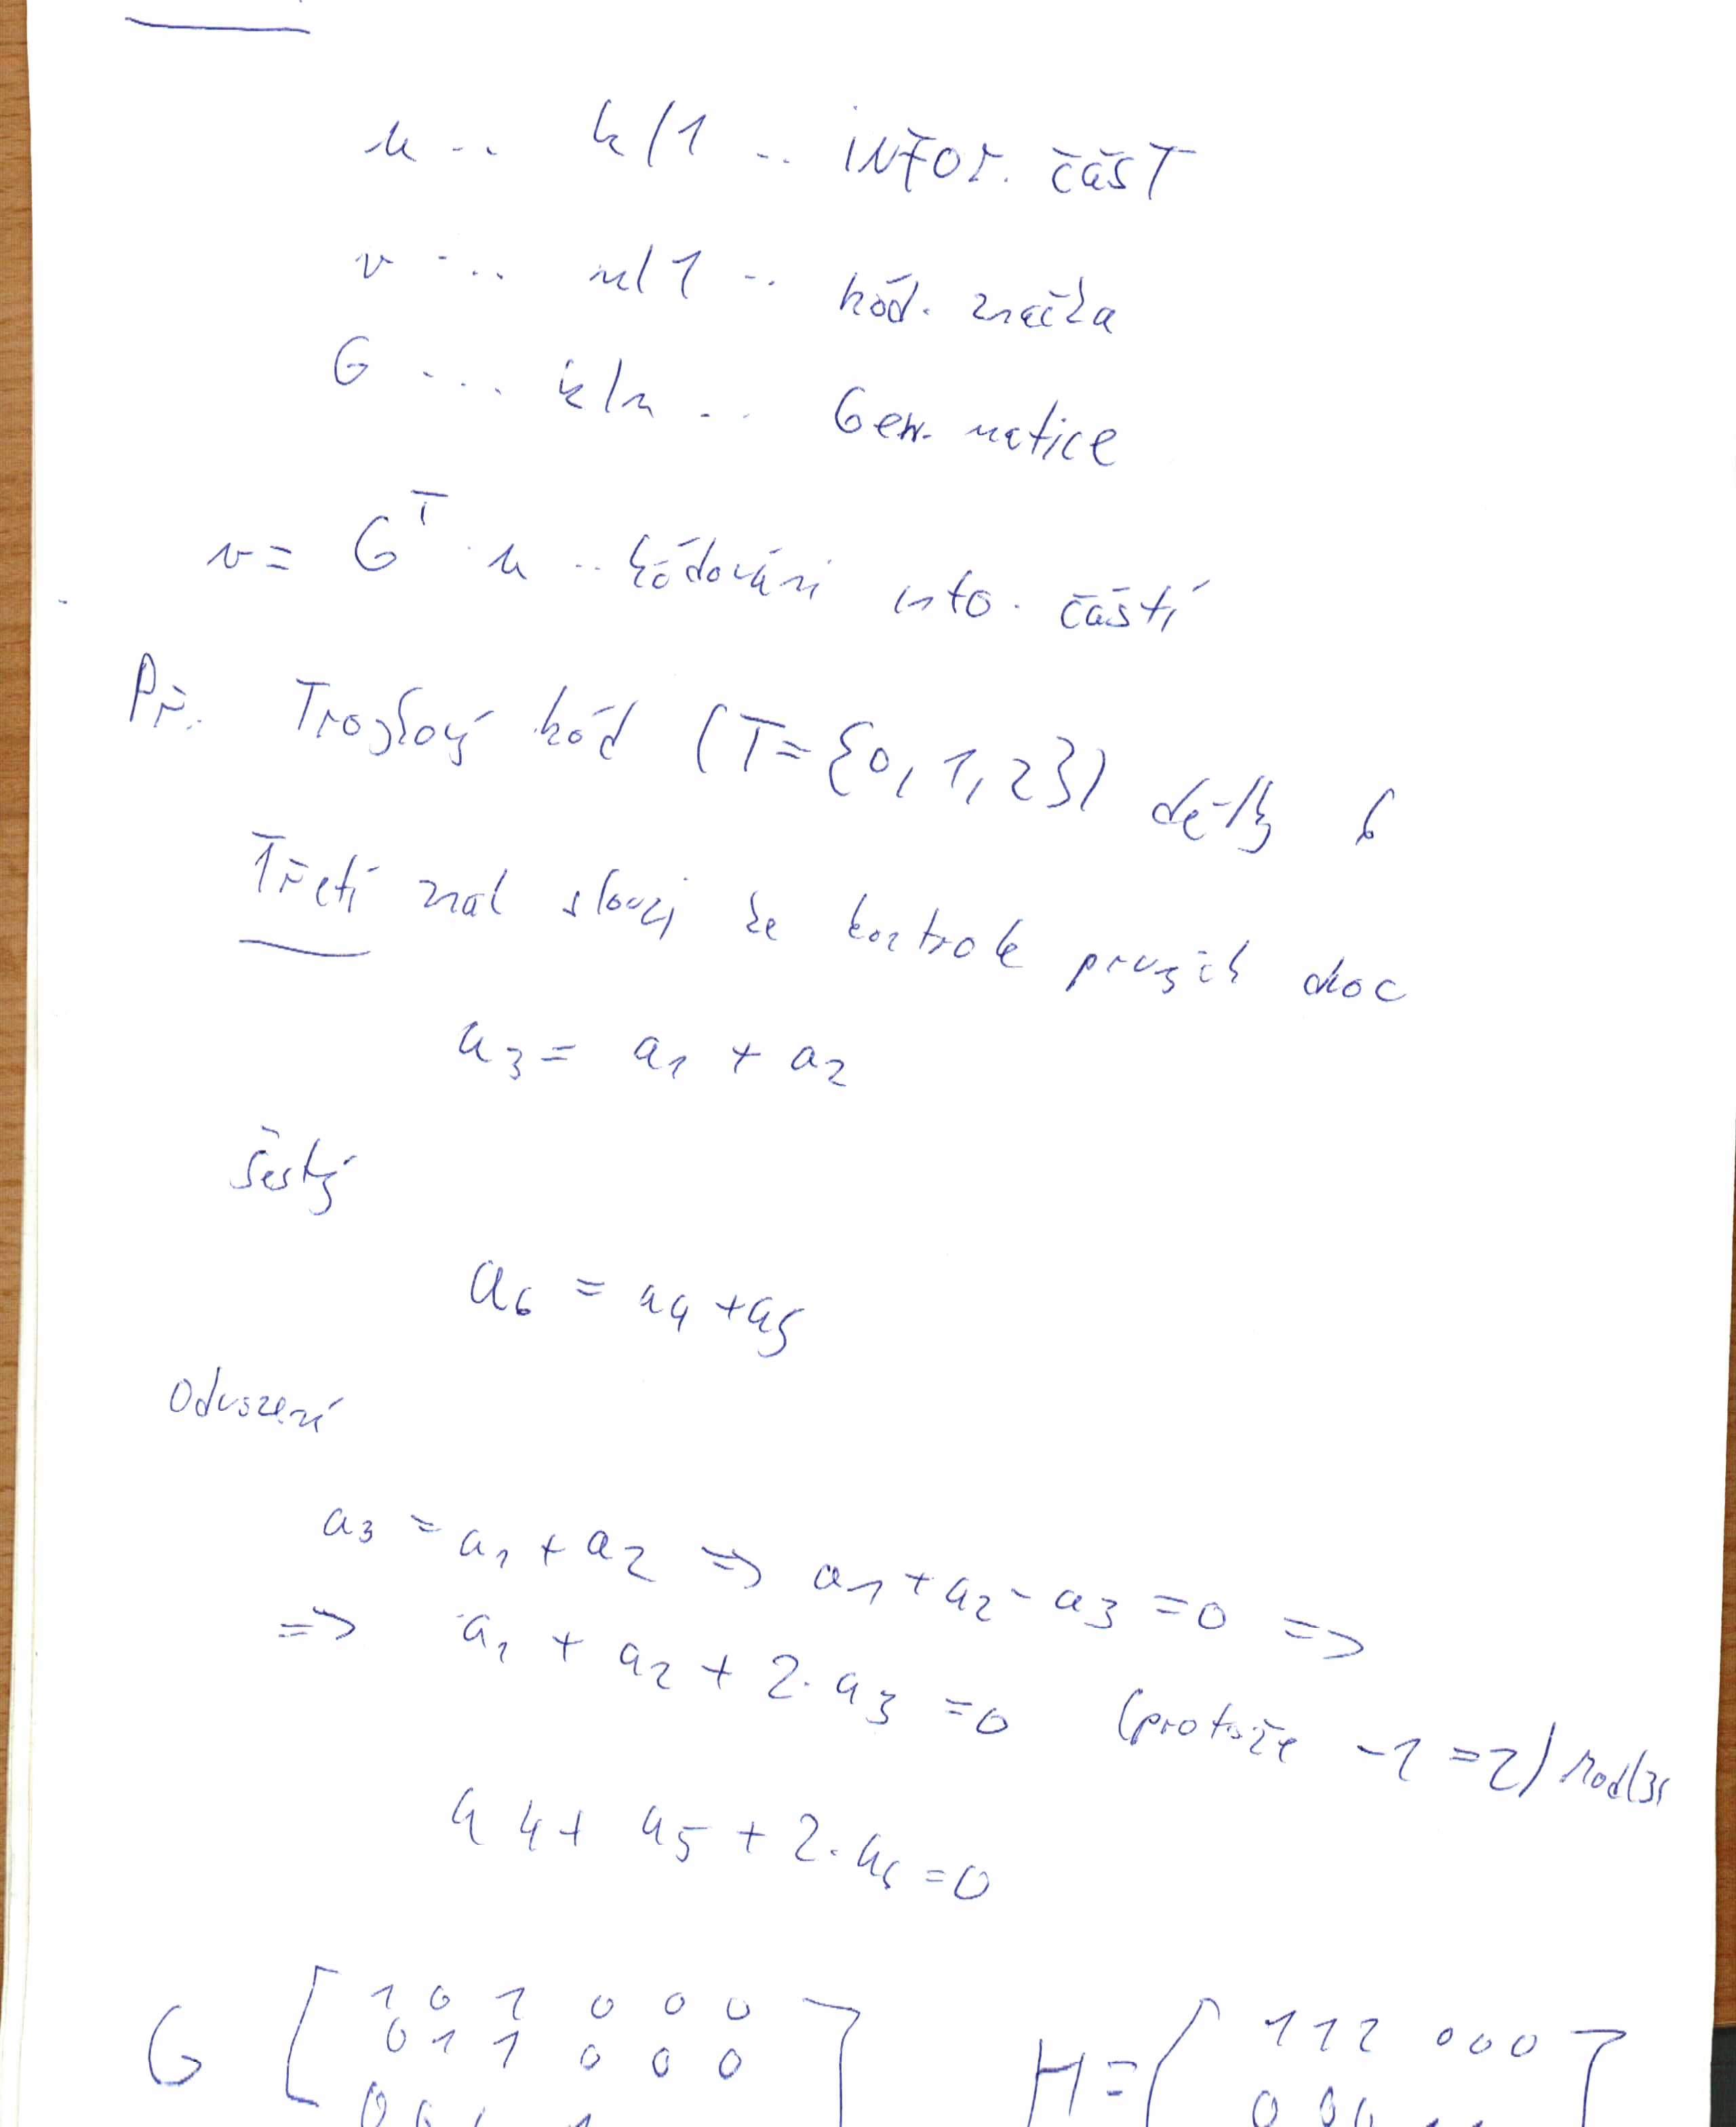 u .. k/1 .. infor. část
v .... n/1 .. kód. značka
G .... k/n .. Gen. matice
v = G^T · u .. kódování info. části
Př. Trojkový kód (T={0,1,2}) délky 6
Třetí znak slouží ke kontrole prvních dvou
a3 = a1 + a2
šestý
a6 = a4 + a5
Odvození
a3 = a1 + a2 => a1 + a2 - a3 = 0 =>
=> a1 + a2 + 2·a3 = 0 (protože -1 = 2) mod(3)
a4 + a5 + 2·a6 = 0
G [ 1 0 1 0 0 0 ] H = [ 1 1 2 0 0 0 ]
0 1 1 0 0 0